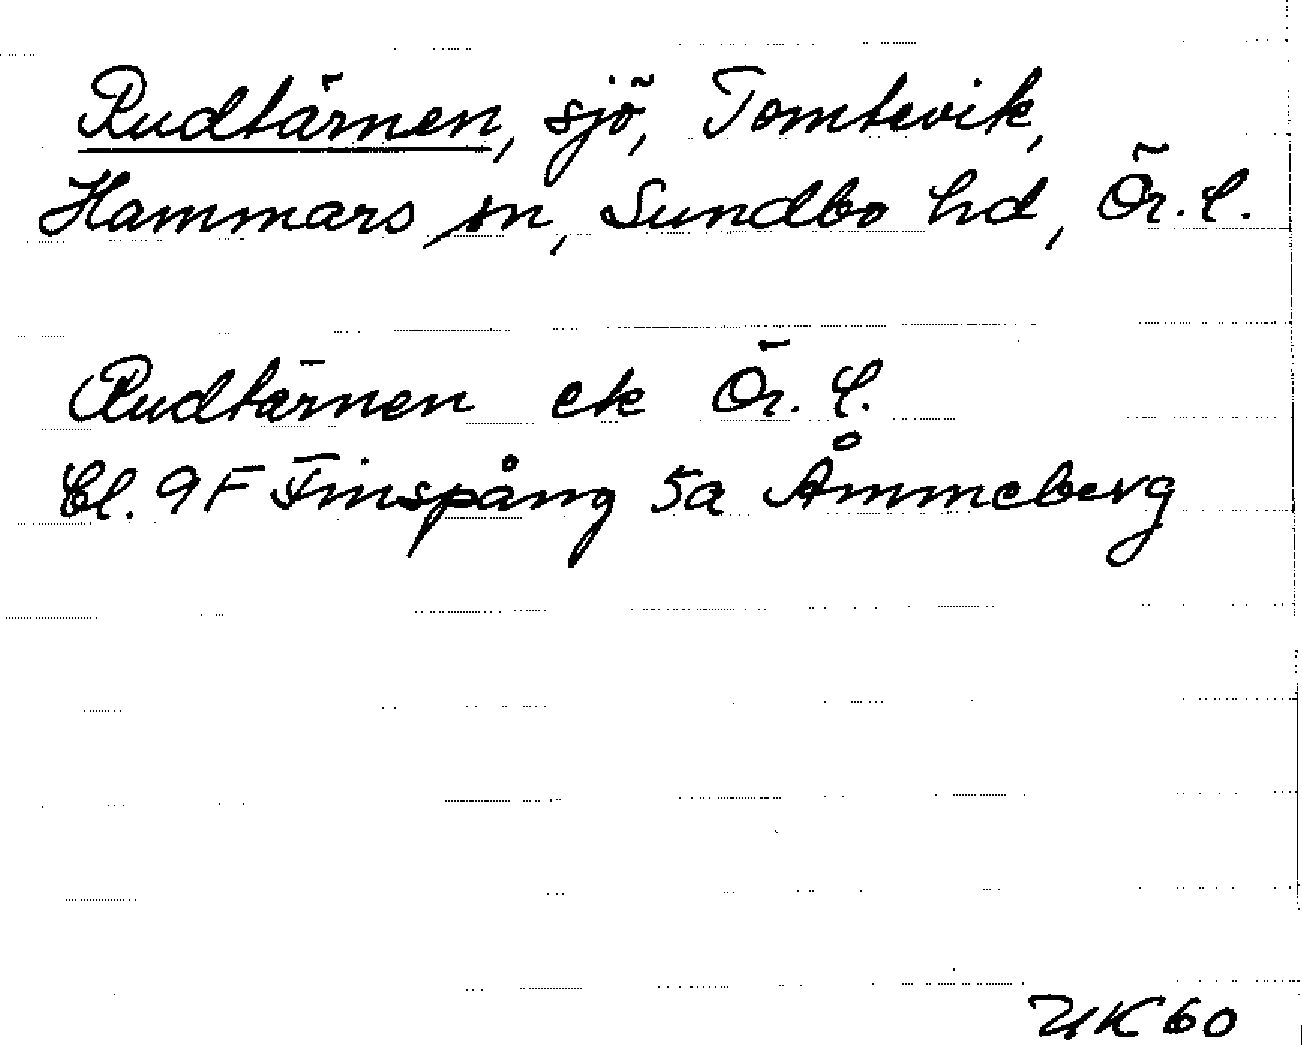 Rudtärnen, sjö, Tomtevik,
Hammars sn, Sundbo hd, Ör. l.
Rudtärnen ek Ör. l.
bl. 9F Finspång 5a Åmmeberg
UK 60